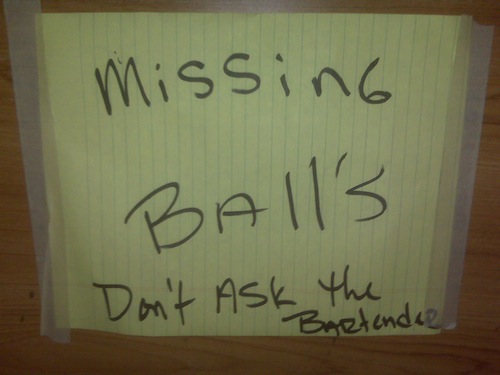 Missing
Ball's
Don't Ask the
Bartender